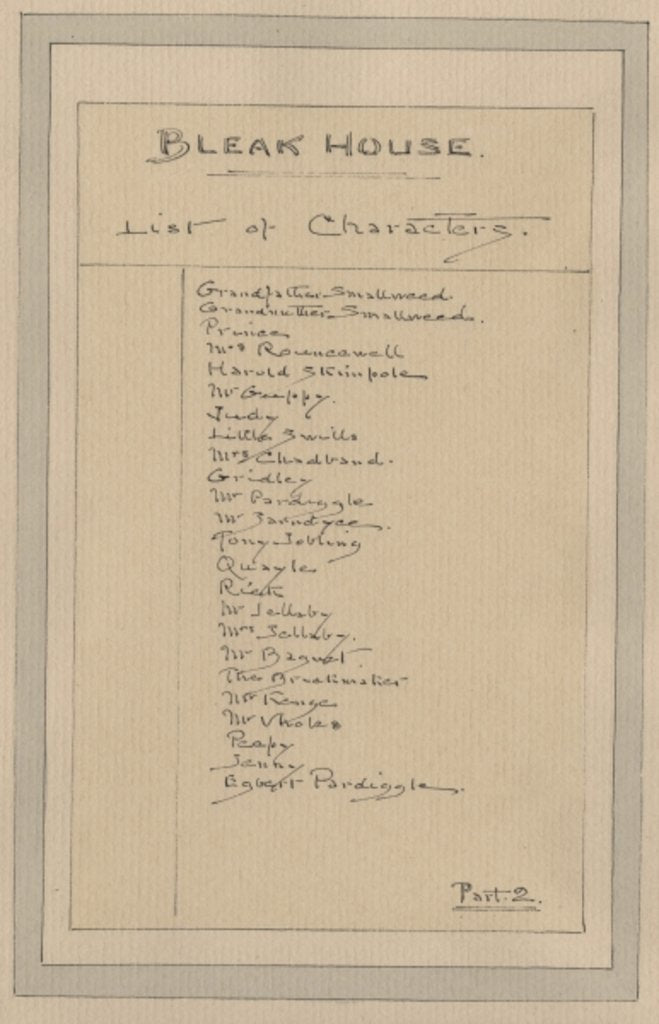 BLEAK HOUSE.
List of Characters.
Grandfather Smallweed.
Grandmother Smallweed.
Prince
Mrs Rouncewell
Harold Skimpole
Mr Guppy.
Judy
Little Swills
Mrs Chadband.
Gridley
Mr Pardiggle
Mr Jarndyce.
Tony Jobling
Quayle
Rick
Mr Jellaby
Mrs Jellaby.
Mr Bagnet.
The Brickmaker
Mr Kenge
Mr Vholes
Peepy
Jenny
Egbert Pardiggle.
Part. 2.